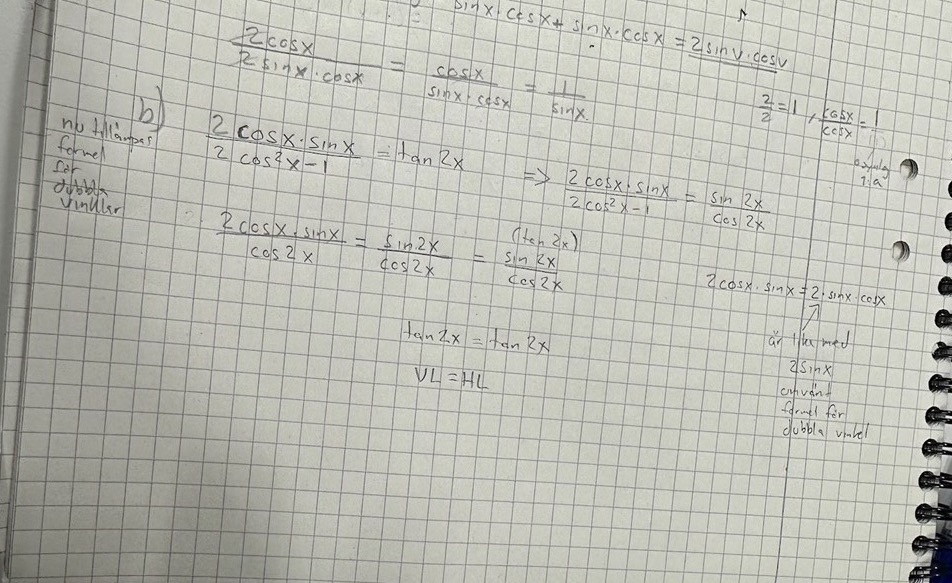 sinx · cosx + sinx · cosx = 2 sin v · cos v
2cosx / 2 sinx · cosx = cosx / sinx · cosx = 1 / sinx
2/2 = 1 , cosx/cosx = 1
b)
nu tillämpas
formel
för
dubbla
vinklar
2 cosx · sinx / 2 cos²x - 1 = tan 2x
=> 2cosx · sinx / 2cos²x - 1 = sin 2x / cos 2x
2 cosx · sinx / cos 2x = sin 2x / cos 2x = (tan 2x) sin 2x / cos 2x
tan 2x = tan 2x
VL = HL
2 cosx · sinx = 2 · sinx · cosx
är lika med
2 sinx
använt
formel för
dubbla vinkel